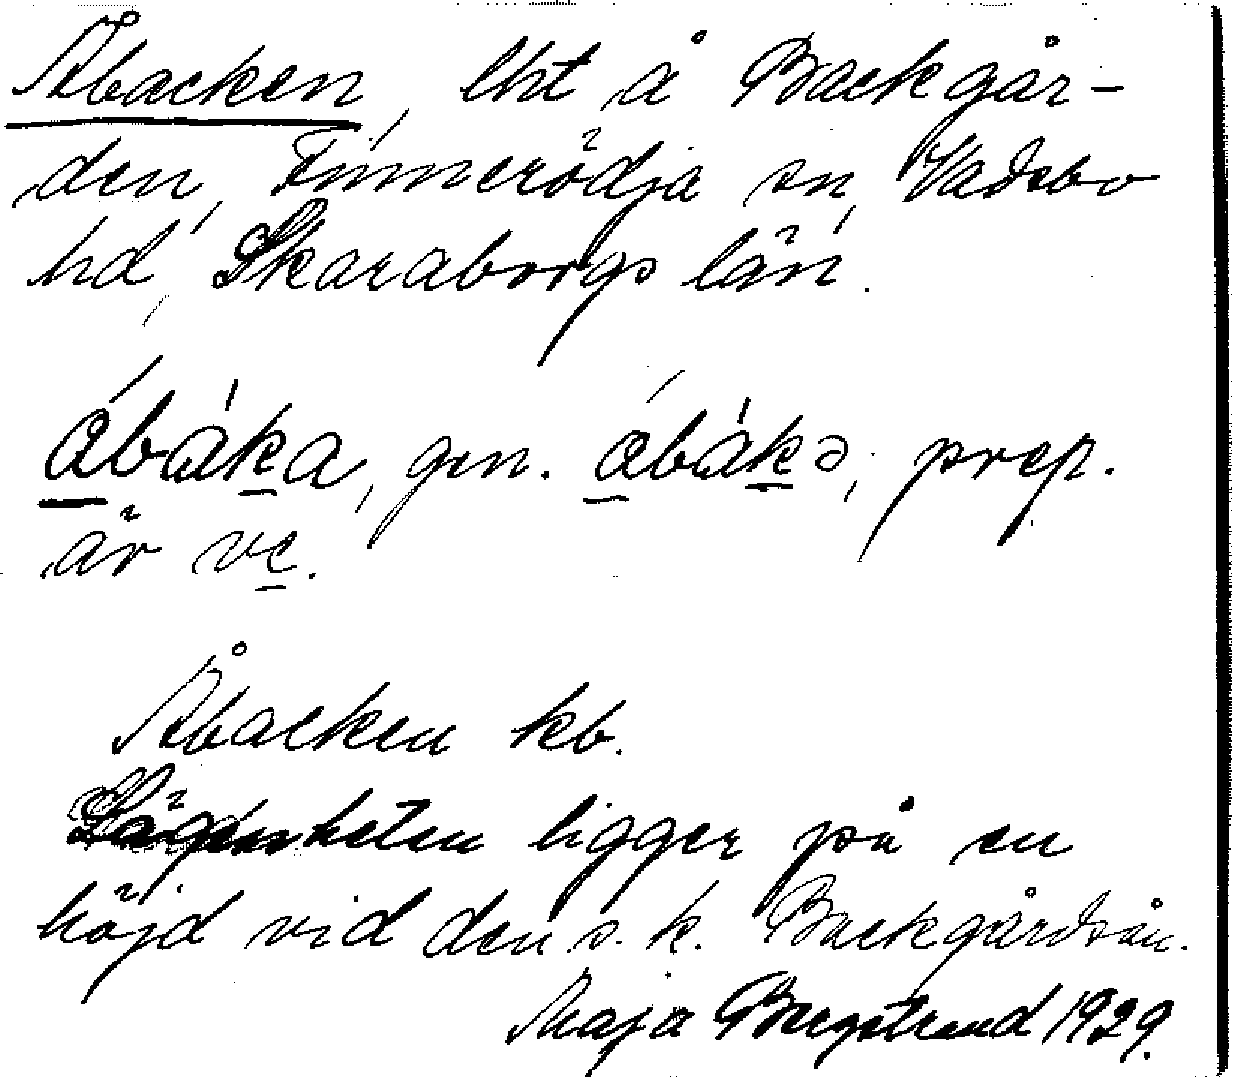 Åbacken, lht å Backgår-
den, Tinnerödja sn, Vadsbo
hd, Skaraborgs län.
åbáka, gen. åbákə, prep.
är ve.
Åbacken kb.
Lägenheten ligger på en
höjd vid den s. k. Backgårdsån.
Maja Bergstrand 1929.